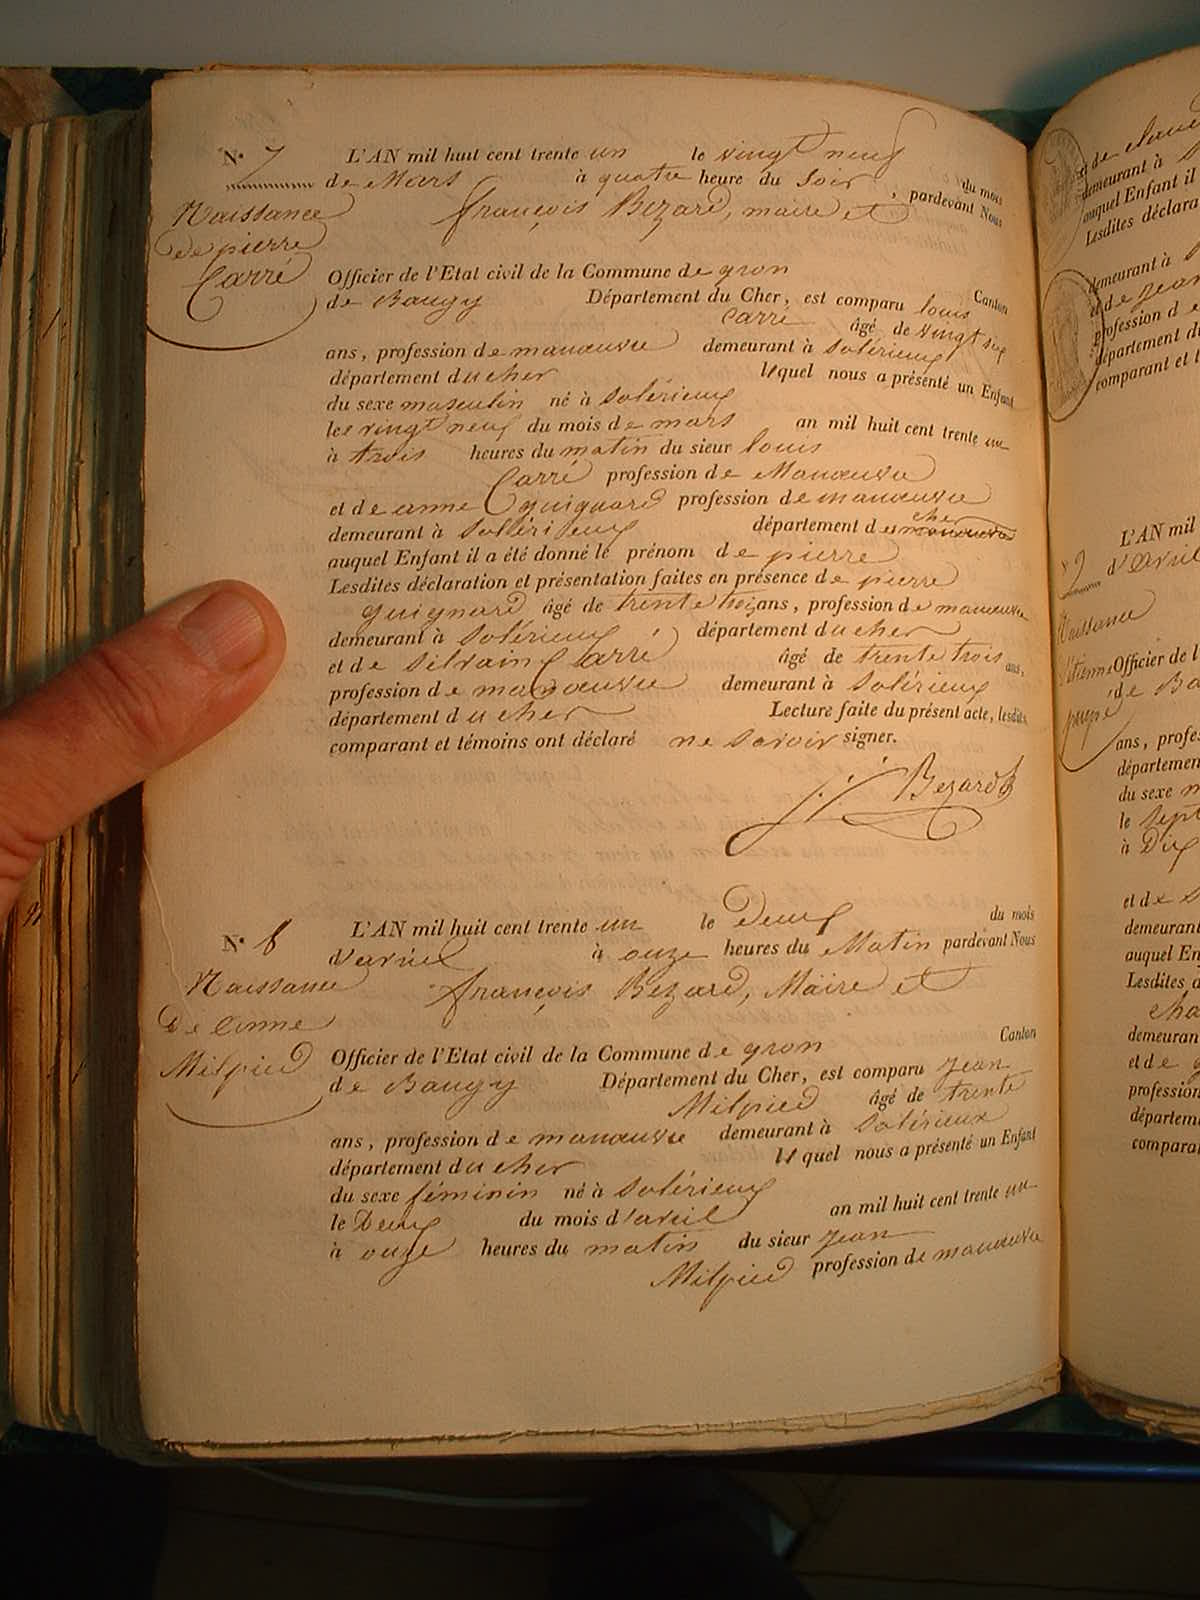 N.° 7
Naissance
de pierre
Carré
L'AN mil huit cent trente un le vingt neuf du mois
de Mars à quatre heure du Soir, pardevant Nous
françois Bezard, maire et
Officier de l'Etat civil de la Commune de gron Canton
de Baugy Département du Cher, est comparu louis
Carré âgé de vingt six
ans, profession de manoeuvre demeurant à Solérieux
département du cher lequel nous a présenté un Enfant
du sexe masculin né à Solérieux
le vingt neuf du mois de mars an mil huit cent trente un
à trois heures du matin du sieur louis
Carré profession de Manoeuvre
et de anne guignard profession de manoeuvre
demeurant à Solérieux département du cher
auquel Enfant il a été donné le prénom de pierre
Lesdites déclaration et présentation faites en présence de pierre
guignard âgé de trente trois ans, profession de manoeuvre
demeurant à Solérieux département du cher
et de Silvain Carré âgé de trente trois ans,
profession de manoeuvre demeurant à Solérieux
département du cher Lecture faite du présent acte, lesdits
comparant et témoins ont déclaré ne Savoir signer.
Bezard
N.° 8
Naissance
De anne
Milpied
L'AN mil huit cent trente un le Deux du mois
d'avril à onze heures du Matin pardevant Nous
françois Bezard, Maire et
Officier de l'Etat civil de la Commune de gron Canton
de Baugy Département du Cher, est comparu Jean
Milpied âgé de trente
ans, profession de manoeuvre demeurant à Solérieux
département du cher lequel nous a présenté un Enfant
du sexe féminin né à Solérieux
le Deux du mois d'avril an mil huit cent trente un
à onze heures du matin du sieur Jean
Milpied profession de manoeuvre
demeurant à
auquel Enfant il
Lesdites déclara
demeurant à
et de Jean
profession de
département du
comparant et
L'AN mil
d'avril
Naissance
Officier de l
de Ba
ans, profes
départemen
du sexe
le Sept
à Dix
et de
demeurant
auquel En
Lesdites
demeuran
et de
profession
départem
compara